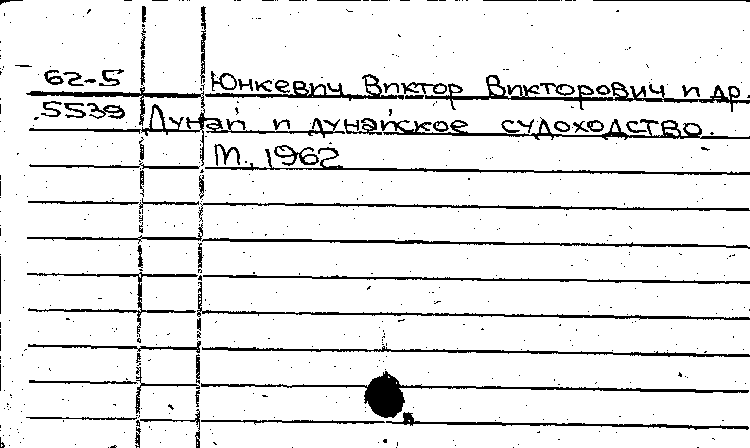 62-5 Юнкевич, Виктор Викторович и др.
5539 Дунай и дунайское судоходство.
М., 1962